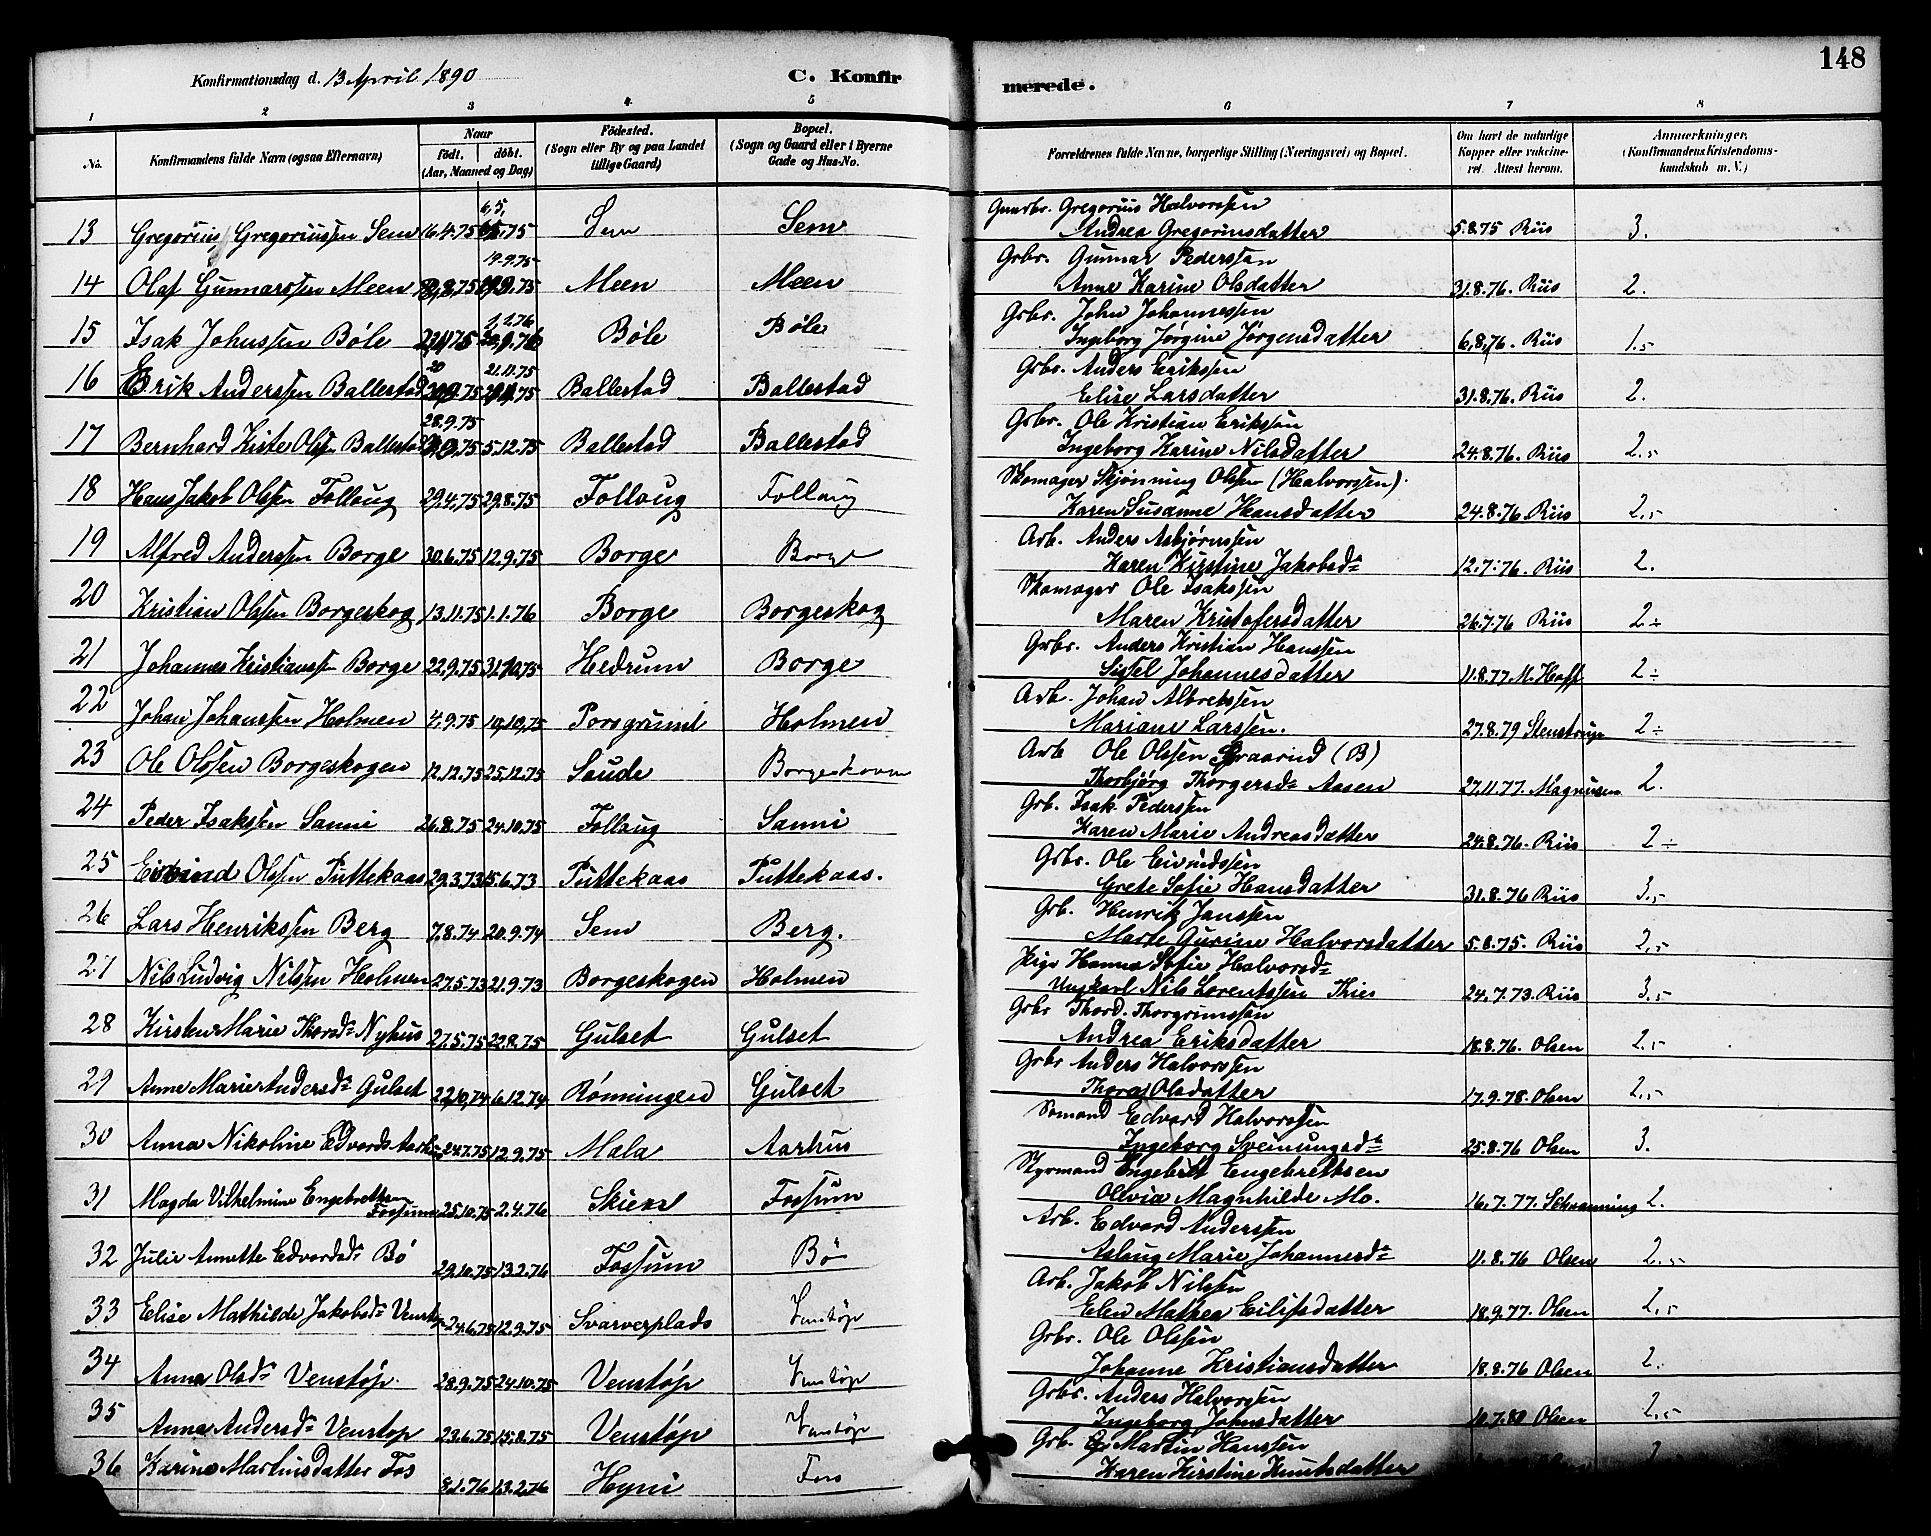 148
Konfirmationsdag d. 13 April 1890 C. Konfirmerede.
1 2 3 4 5 6 7 8
No. Konfirmandens fulde Navn (ogsaa Efternavn) Naar født, døbt. (Aar, Maaned og Dag) Fødested. (Sogn eller By og paa Landet tillige Gaard) Bopæl. (Sogn og Gaard eller i Byerne Gade og Hus-No. Forældrenes fulde Navne, borgerlige Stilling (Næringsvei) og Bopæl. Om havt de naturlige Kopper eller vaccineret. Attest herom. Anmærkninger, (Konfirmandens Kristendomskundskab m. V.)
13 Gregorius Gregoriussen Sem 16.4.75 6,5,75 Sem Sem Gaardbr. Gregorius Halvorssen
Andrea Gregoriusdatter 5.8.75 Riis 3.
14 Olaf Gunnarssen Meen 19.9.75 Meen Meen Grbr. Gunnar Pederssen
Anne Karine Olsdatter 31.8.76. Riis 2.
15 Isak Johnssen Bøle 1,2.76 Bøle Bøle Grbr. John Johannessen
Ingeborg Jørgine Jørgensdatter 6,8,76. Riis 1.5
16 Erik Anderssen Ballestad 21.11.75 Ballestad Ballestad Grbr. Anders Erikssen
Elise Larsdatter 31.8.76. Riis 2.
17 Bernhard Kriste Olsen Ballestad 28.9.75 5.12.75 Ballestad Ballestad Grbr. Ole Kristian Erikssen
Ingeborg Karine Nilsdatter 24.8.76. Riis 2.5
18 Hans Jakob Olssen Follaug 29.4.75 29.8.75 Follaug Follaug Skomager Skjønning Olssen (Halvorssen).
Karen Susanne Hansdatter 24.8.76 Riis 2.5
19 Alfred Anderssen Borge 30.6.75 12.9.75 Borge Borge Arb. Anders Asbjørnssen
Karen Kirstine Jakobsdr 12.7.76. Riis 2.
20 Kristian Olssen Borgeskog 13.11.75 1.1.76 Borge Borgeskog Skomager Ole Isakssen
Maren Kristofersdatter 26.7.76 Riis 2÷
21 Johannes Kristianssen Borge 22.9.75 31.10.75 Hedrum Borge Grbr. Anders Kristian Hanssen
Sissel Johannesdatter 11.8.77. M. Hoff 2÷
22 Johan Johanssen Holmen 4.9.75 10,10,75 Porsgrund Holmen Arb. Johan Albretssen
Mariane Larssen. 27.8.79 Stenstrup 2÷
23 Ole Olssen Borgeskogen 12.12.75 25.12.75 Saude Arb Ole Olssen Graarud (B)
Thorbjørg Thorgersdr Aasen 27.11.77. Magnusen 2.
24 Peder Isakssen Sanni 26.8.75 24.10.75 Follaug Sanni Grb. Isak Pederssen
Karen Marie Andreasdatter 24.8.76. Riis 2÷
25 Eivind Olssen Puttekaas 29.3.73 15.6.73 Puttekaas Puttekaas. Grbr. Ole Eivindssen
Grete Sofie Hansdatter 31.8.76 Riis 3.5
26 Lars Henrikssen Berg 7.8.74 20.9.74 Sem Berg. Grb. Henrik Janssen
Marte Gurine Halvorsdatter 5.8.75. Riis 2,5
27 Nils Ludvig Nilssen Holmen 27.5.73 21.9.73 Borgeskogen Holmen Pige Hanna Sofie Halvorsdr
Ungkarl Nils Lorentssen Kries 24.7.73. Riis 3.5
28 Kirsten Marie Thorsdr Nyhus 27.5.75 22.8.75 Gulset Gulset Grbr Thord. Thorgrimssen
Andrea Eriksdatter 18.8.76. Olsen 2.5
29 Anne Marie Andersdr Gulset 22,10,74 6.12.74 Rønningen Gulset Grbr Anders Halvorssen
Thora Olsdatter 17.9.78. Olsen 2.5
30 Anna Nikoline Edvards 24.7.75 12.9.75 Mala Aarhus Sømand Edvard Halvorssen
Ingeborg Sveinungsdr 25.8.76 Olsen 3.
31 Magda Vilhelmine Engebretsen Fossum 25.10.75 2.4.76 Skien Fossum Styrmand Engebret Engebretksen
Olivia Magnhilde Mo. 16.7.77. Schwanning 2.
32 Julie Annette Edvardsdr Bø 29.10.75 13.2.76 Fossum Bø Arb. Edvard Anderssen
Aslaug Marie Johannesdr 11.8.76 Olsen 2.5
33 Elise Mathilde Jakobsdr Venstøp 24.6.75 12.9.75 Svarverplads Venstøp Arb. Jakob Nilssen
Elen Mathea Eilifsdatter 18.9.77. Olsen 2,5
34 Anna Olsdr Venstøp. 28.9.75 24.10.75 Venstøp Venstøp Grbr. Ole Olssen
Johanne Kristiansdatter 18.8.76 Olsen 2.
35 Anna Andersdr Venstøp 23.6.75 15.8.75 Venstøp Venstøp Grbr. Anders Halvorssen
Ingeborg Johnsdatter 10.7.80 Olsen 2,5
36 Karine Martinsdatter Fos 8.1.76 13.2.76 Hyni Fos Grb. Martin Hanssen
Karen Kirstine Knutsdatter 2